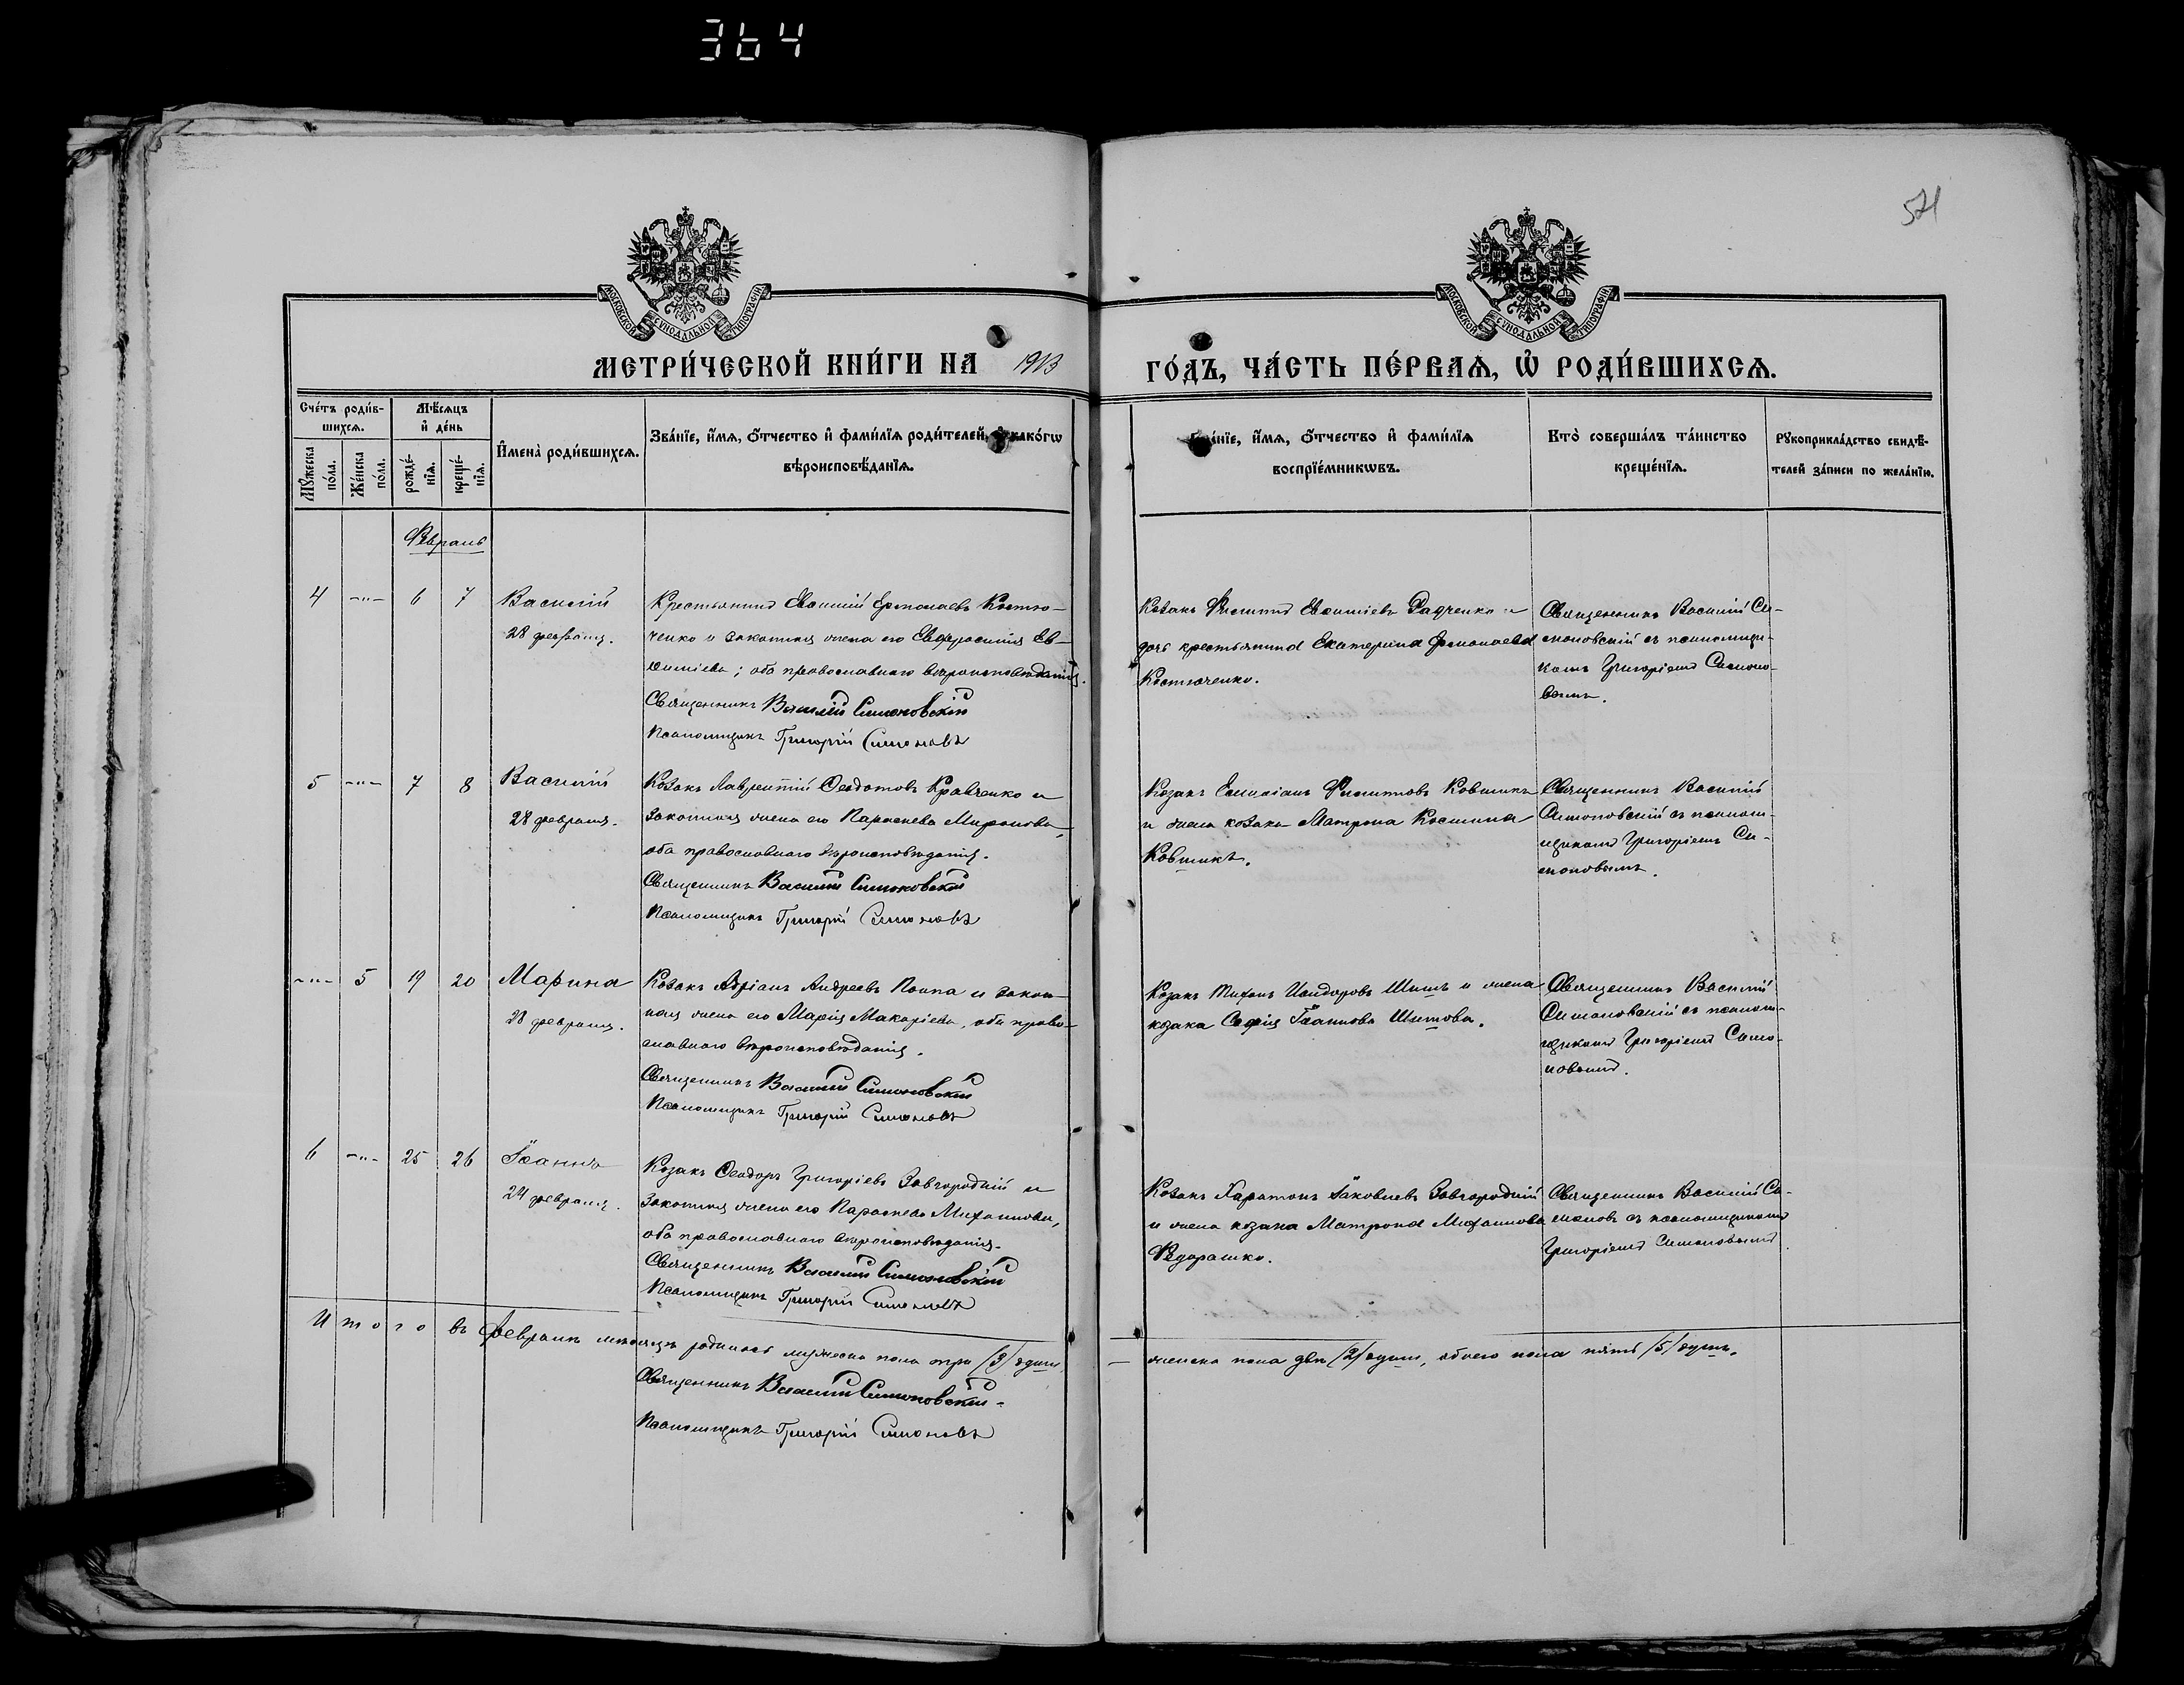 364
521
МОСКОВСКОЙ СѴНОДАЛЬНОЙ ТИПОГРАФІИ
МОСКОВСКОЙ СѴНОДАЛЬНОЙ ТИПОГРАФІИ
МЕТРИ́ЧЕСКОЙ КНИ́ГИ НА 1913 ГО́ДЪ, ЧА́СТЬ ПЕ́РВАѦ, Ѡ҆ РОДИ́ВШИХСѦ.
Сче́тъ роди́в-
шихсѧ.
Мꙋ́жеска по́ла.
Же́нска по́ла.
Мѣ́сѧцъ
и҆ де́нь
рожде́-
нїѧ.
креще́-
нїѧ.
И҆мена̀ роди́вшихсѧ.
Зва́нїе, и҆́мѧ, ѻ҆́тчество и҆ фами́лїѧ роди́телей, и҆ како́гѡ
вѣроисповѣ́данїѧ.
Зва́нїе, и҆́мѧ, ѻ҆́тчество и҆ фами́лїѧ
воспрїе́мникѡвъ.
Кто̀ соверша́лъ та́инство
креще́нїѧ.
Рꙋкоприкла́дство свидѣ́-
телей за́писи по жела́нїю.
Февраль
4 -"- 6 7
Василій
28 февраля.
Крестьянинъ Евѳимій Ермолаевъ Костю-
ченко и законная жена его Евфросинія Ев-
ѳиміева; оба православнаго вѣроисповѣданія.
Священникъ Василій Симоновскій
Псаломщикъ Григорій Симоновъ
Козакъ Филиппъ Евѳиміевъ Радченко и
дочь крестьянина Екатерина Ермолаева
Костюченко.
Священникъ Василій Си-
моновскій съ псаломщи-
комъ Григоріемъ Симоно-
вымъ.
5 -"- 7 8
Василій
28 февраля.
Козакъ Лаврентій Ѳеодотовъ Кравченко и
законная жена его Параскева Миронова,
оба православнаго вѣроисповѣданія.
Священникъ Василій Симоновскій
Псаломщикъ Григорій Симоновъ
Козакъ Емиліанъ Филипповъ Ковшикъ
и жена козака Матрона Космина
Ковшикъ.
Священникъ Василій
Симоновскій съ псалом-
щикомъ Григоріемъ Си-
моновымъ.
-"- 5 19 20
Марина
28 февраля.
Козакъ Адріанъ Андреевъ Полпа и закон-
ная жена его Марія Макаріева, оба право-
славнаго вѣроисповѣданія.
Священникъ Василій Симоновскій
Псаломщикъ Григорій Симоновъ
Козакъ Тихонъ Исидоровъ Шишъ и жена
козака Софія Іоаннова Шитова.
Священникъ Василій
Симоновскій съ псалом-
щикомъ Григоріемъ Симо-
новымъ.
6 -"- 25 26
Іоаннъ
24 февраля.
Козакъ Ѳеодоръ Григоріевъ Завгородній и
законная жена его Параскева Михаилова,
оба православнаго вѣроисповѣданія.
Священникъ Василій Симоновскій
Псаломщикъ Григорій Симоновъ
Козакъ Харитонъ Іаковлевъ Завгородній
и жена козака Матрона Михаилова
Федорашко.
Священникъ Василій Си-
моновъ съ псаломщикомъ
Григоріемъ Симоновымъ
Итого въ февралѣ мѣсяцѣ родилось мужеска пола три /3/ души — женска пола двѣ /2/ души, обоего пола пять /5/ душъ.
Священникъ Василій Симоновскій.
Псаломщикъ Григорій Симоновъ